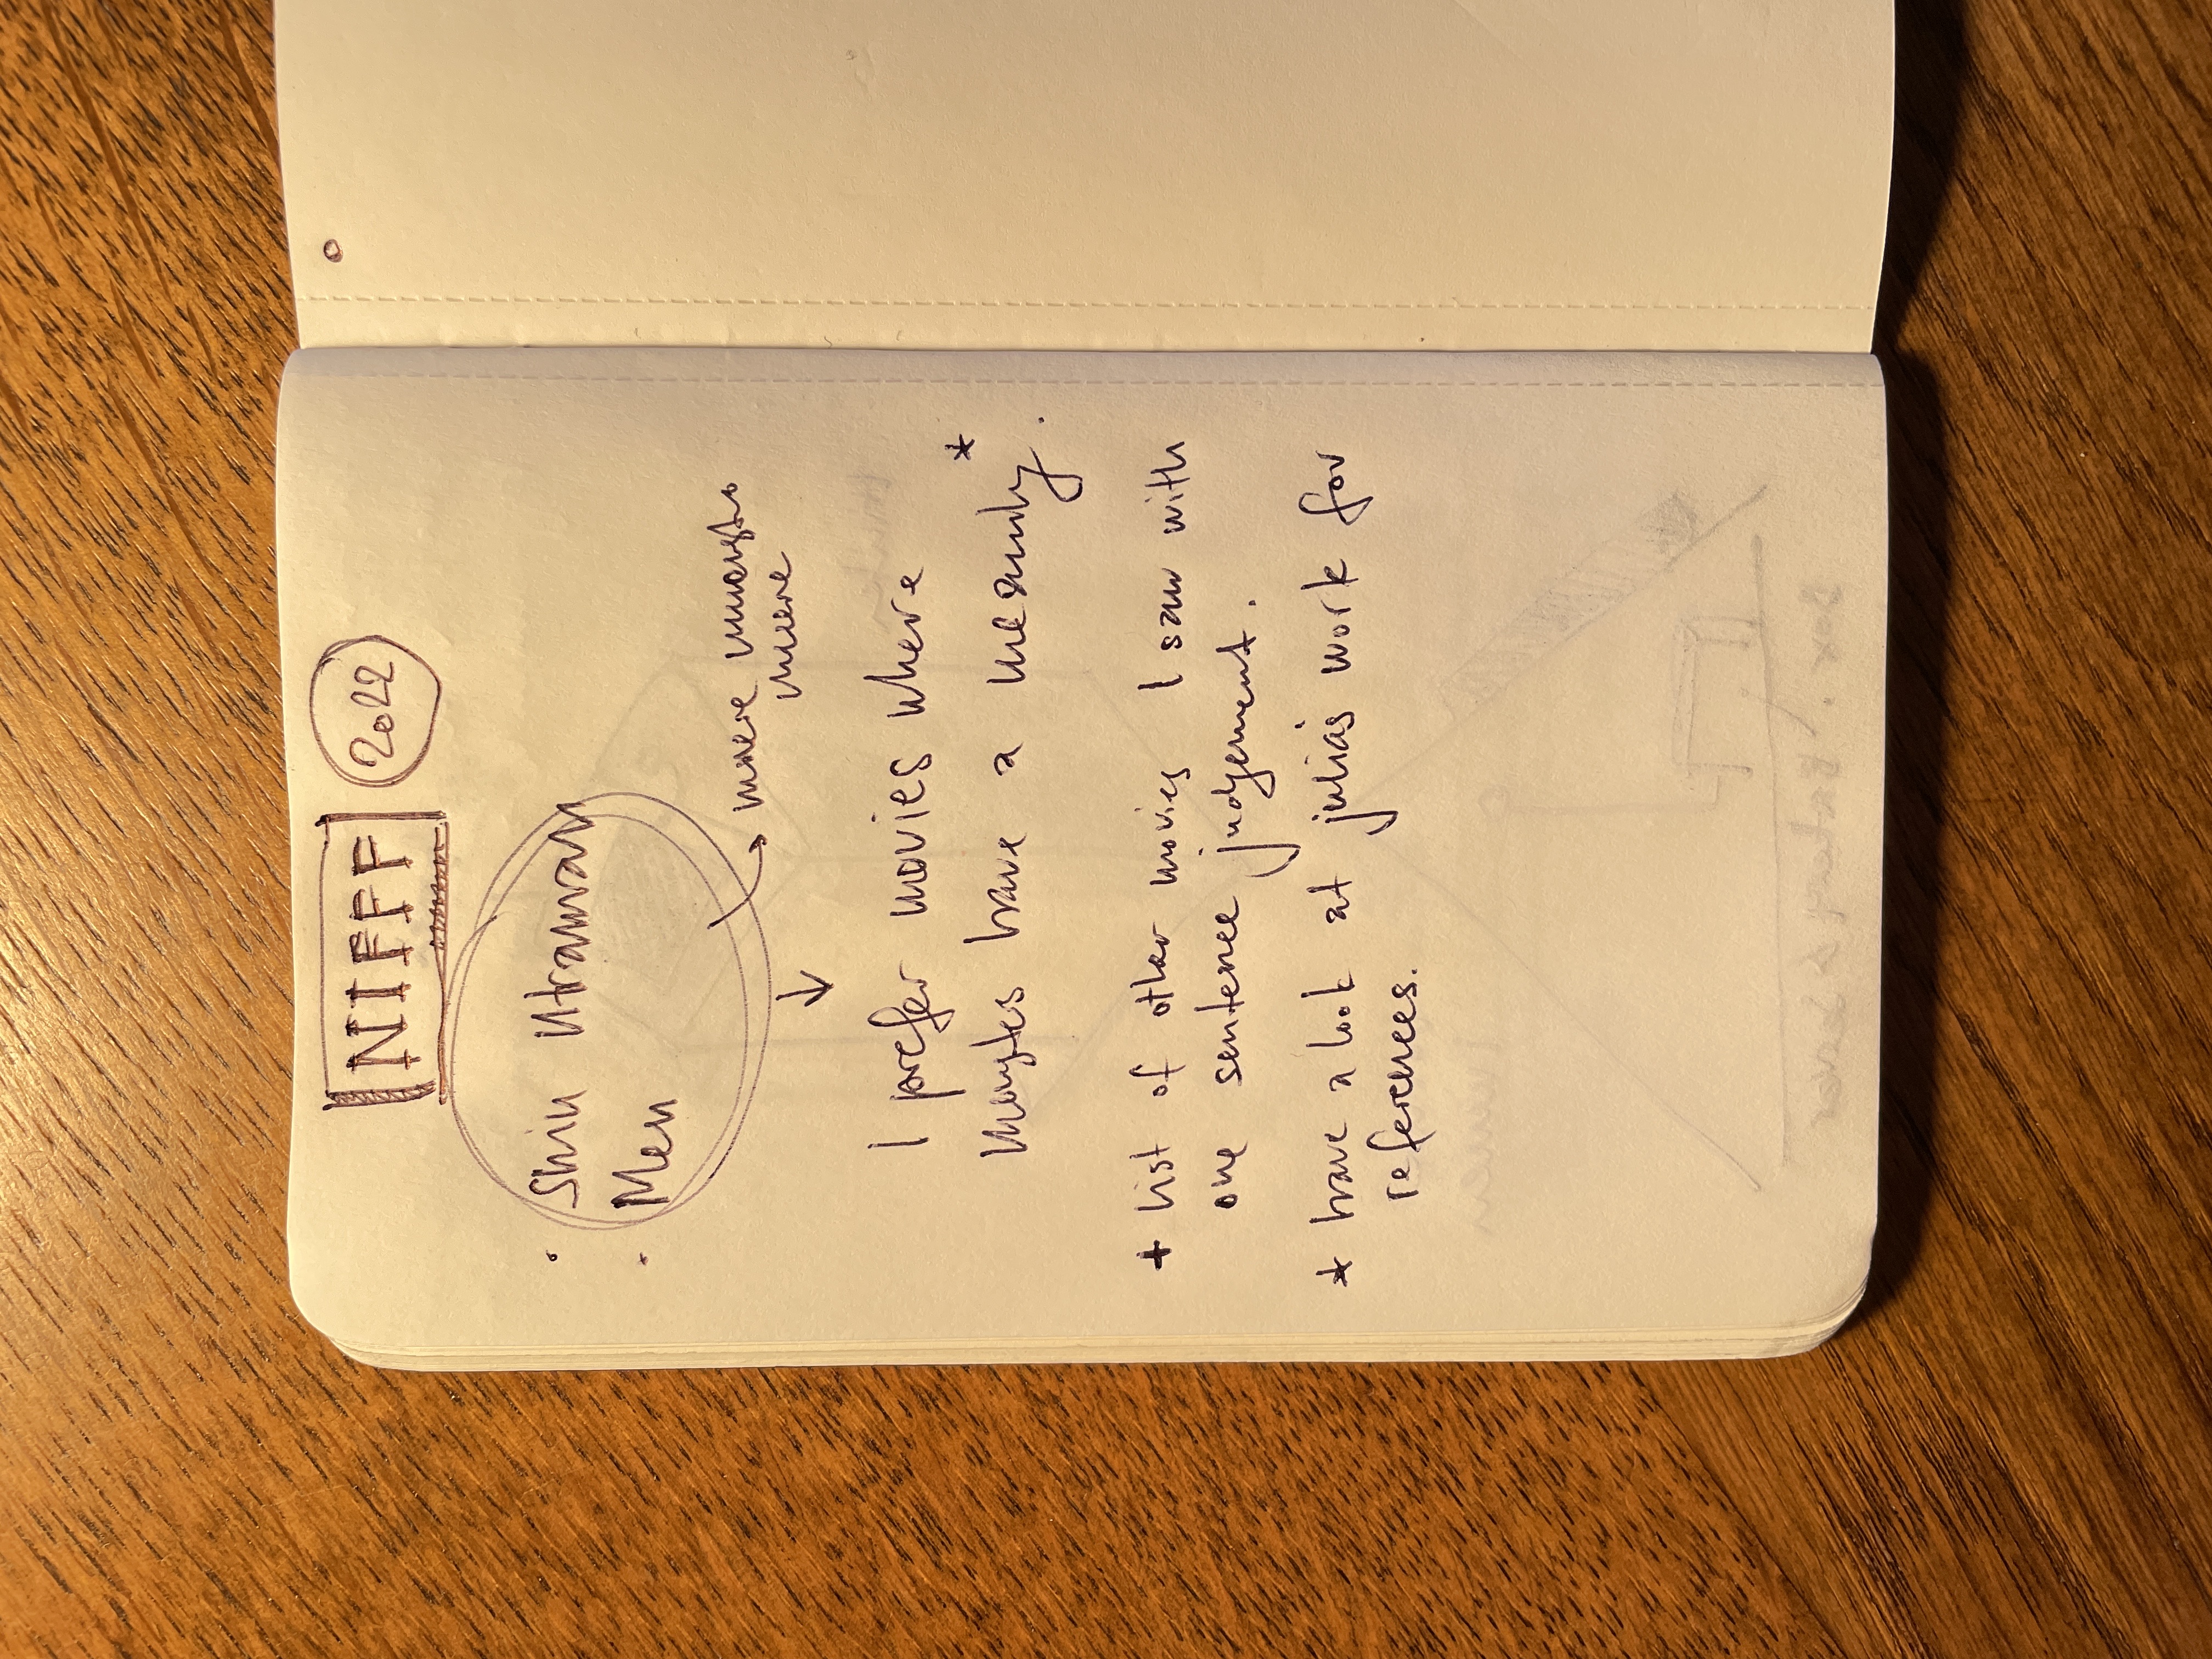 NIFFF 2022
· Shin Utraman
· Men
I prefer movies where
have a meaning*.
* list of other movies I saw with
one sentence judgement.
* have a look at julia's work for
references.